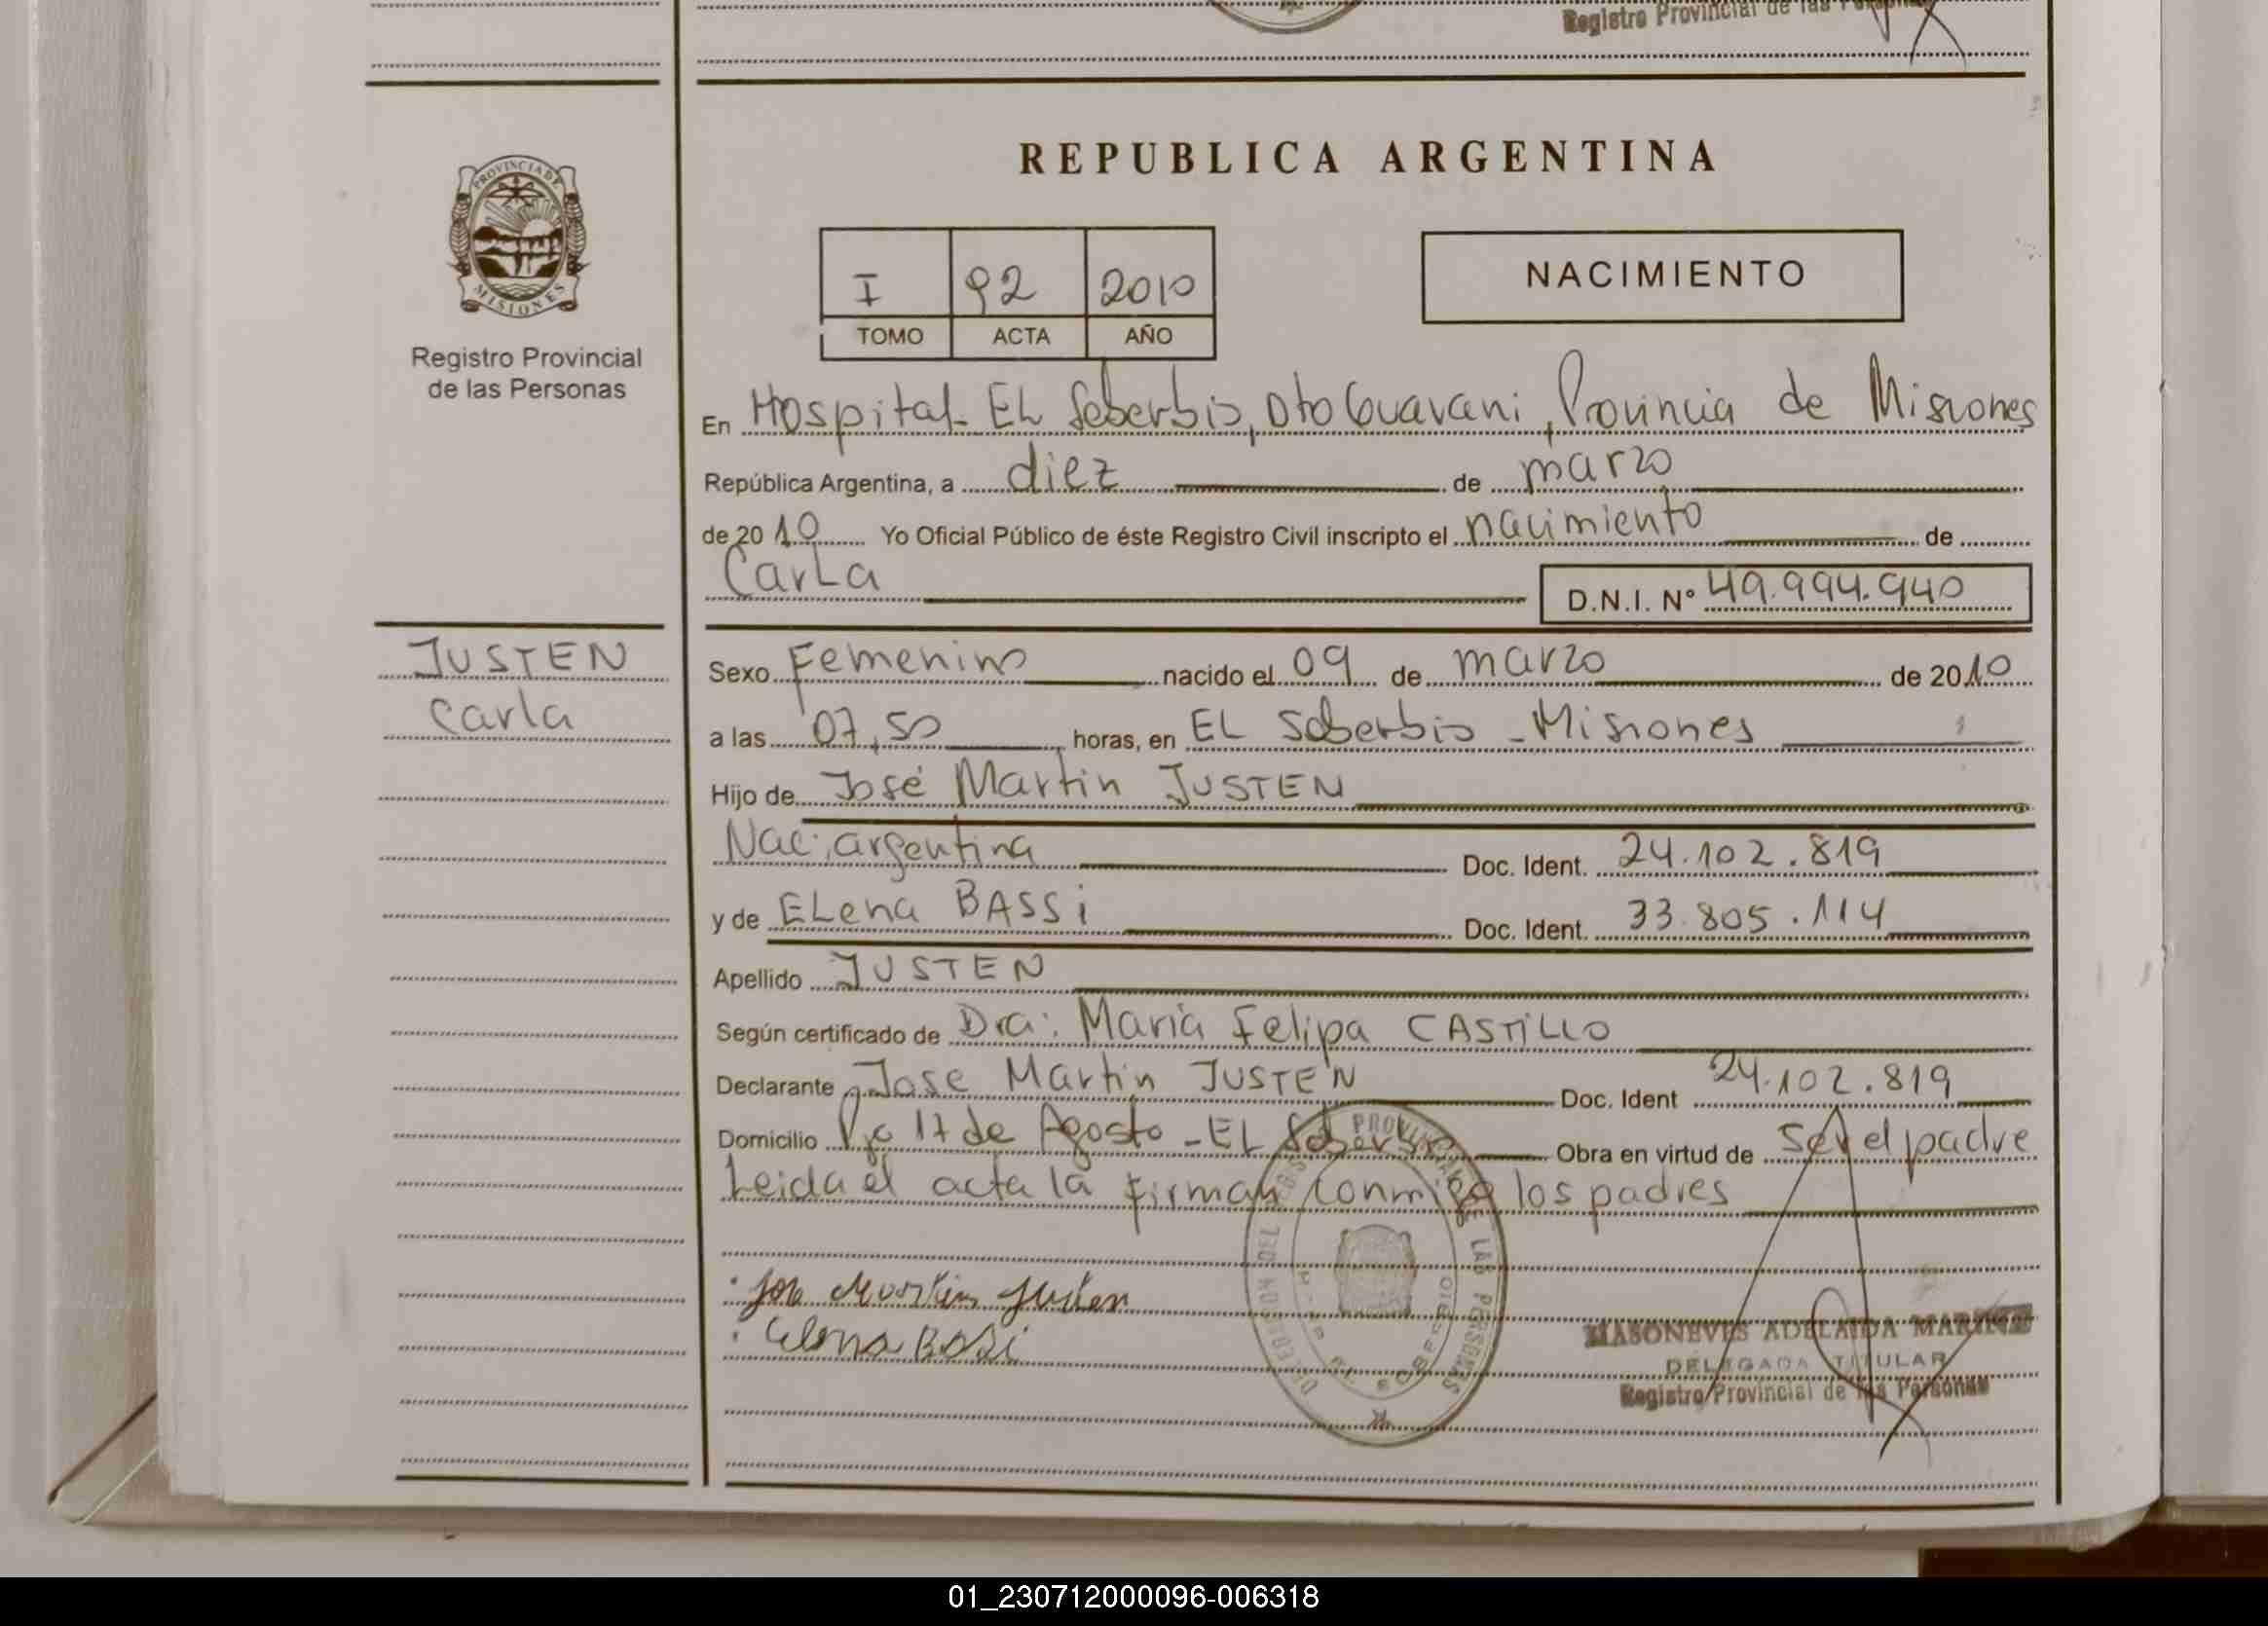 Registro Provincial de las
REPUBLICA ARGENTINA
PROVINCIA DE
MISIONES
Registro Provincial
de las Personas
I 92 2010
TOMO ACTA AÑO
NACIMIENTO
En Hospital - EL Soberbio, Dto Guarani, Provincia de Misiones
República Argentina, a diez de marzo
de 2010 Yo Oficial Público de éste Registro Civil inscripto el nacimiento de
CarLa D.N.I. N° 49.994.940
JUSTEN
Carla
Sexo Femenino nacido el 09 de marzo de 2010
a las 07,50 horas, en EL Soberbio - Misiones
Hijo de José Martin JUSTEN
Nac: argentina Doc. Ident. 24.102.819
y de ELena BASSi Doc. Ident. 33.805.114
Apellido JUSTEN
Según certificado de Dra: Maria Felipa CASTiLLO
Declarante Jose Martin JUSTEN Doc. Ident 24.102.819
Domicilio 17 de Agosto - EL Soberbio Obra en virtud de ser el padre
Leida el acta la firman conmigo los padres
Jose Martin Justen
Elena Basi
ADELAIDA
DELEGADA TITULAR
Registro Provincial de las Personas
01_230712000096-006318